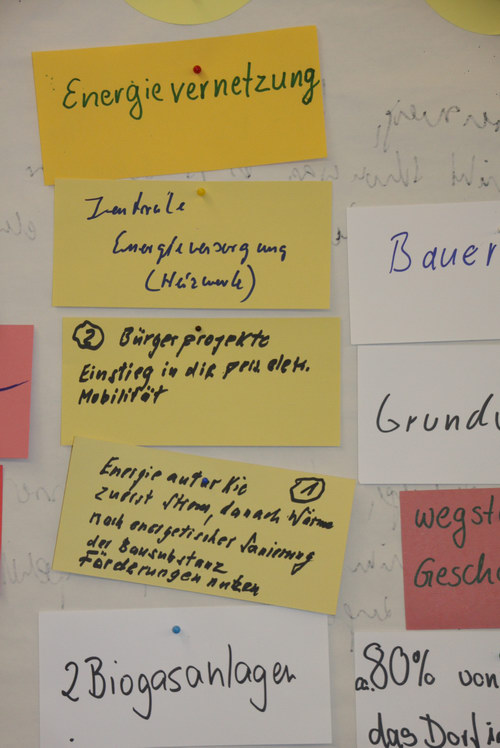 Energievernetzung
Zentrale
Energieversorgung
(Heizwerk)
2 Bürgerprojekte
Einstieg in die pers. elektr.
Mobilität
Energie autarkie 1
zuerst Strom, danach Wärme
nach energetischer Sanierung
der Bausubstanz
Förderungen nutzen
2 Biogasanlagen
Bauer
Grundv
wegst
Gesch
ca. 80% von
das Dorf i